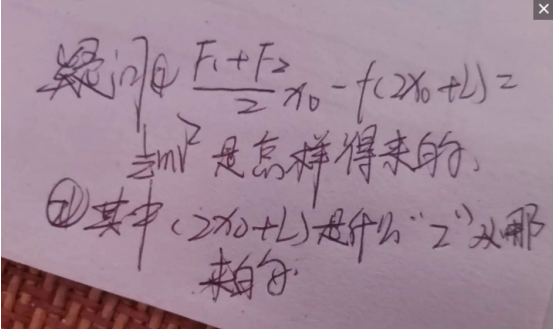 疑问① (F₁+F₂)/2 x₀ - f(2x₀+L) =
½mv² 是怎样得来的,
② 其中(2x₀+L)是什么"2"从哪
来的.